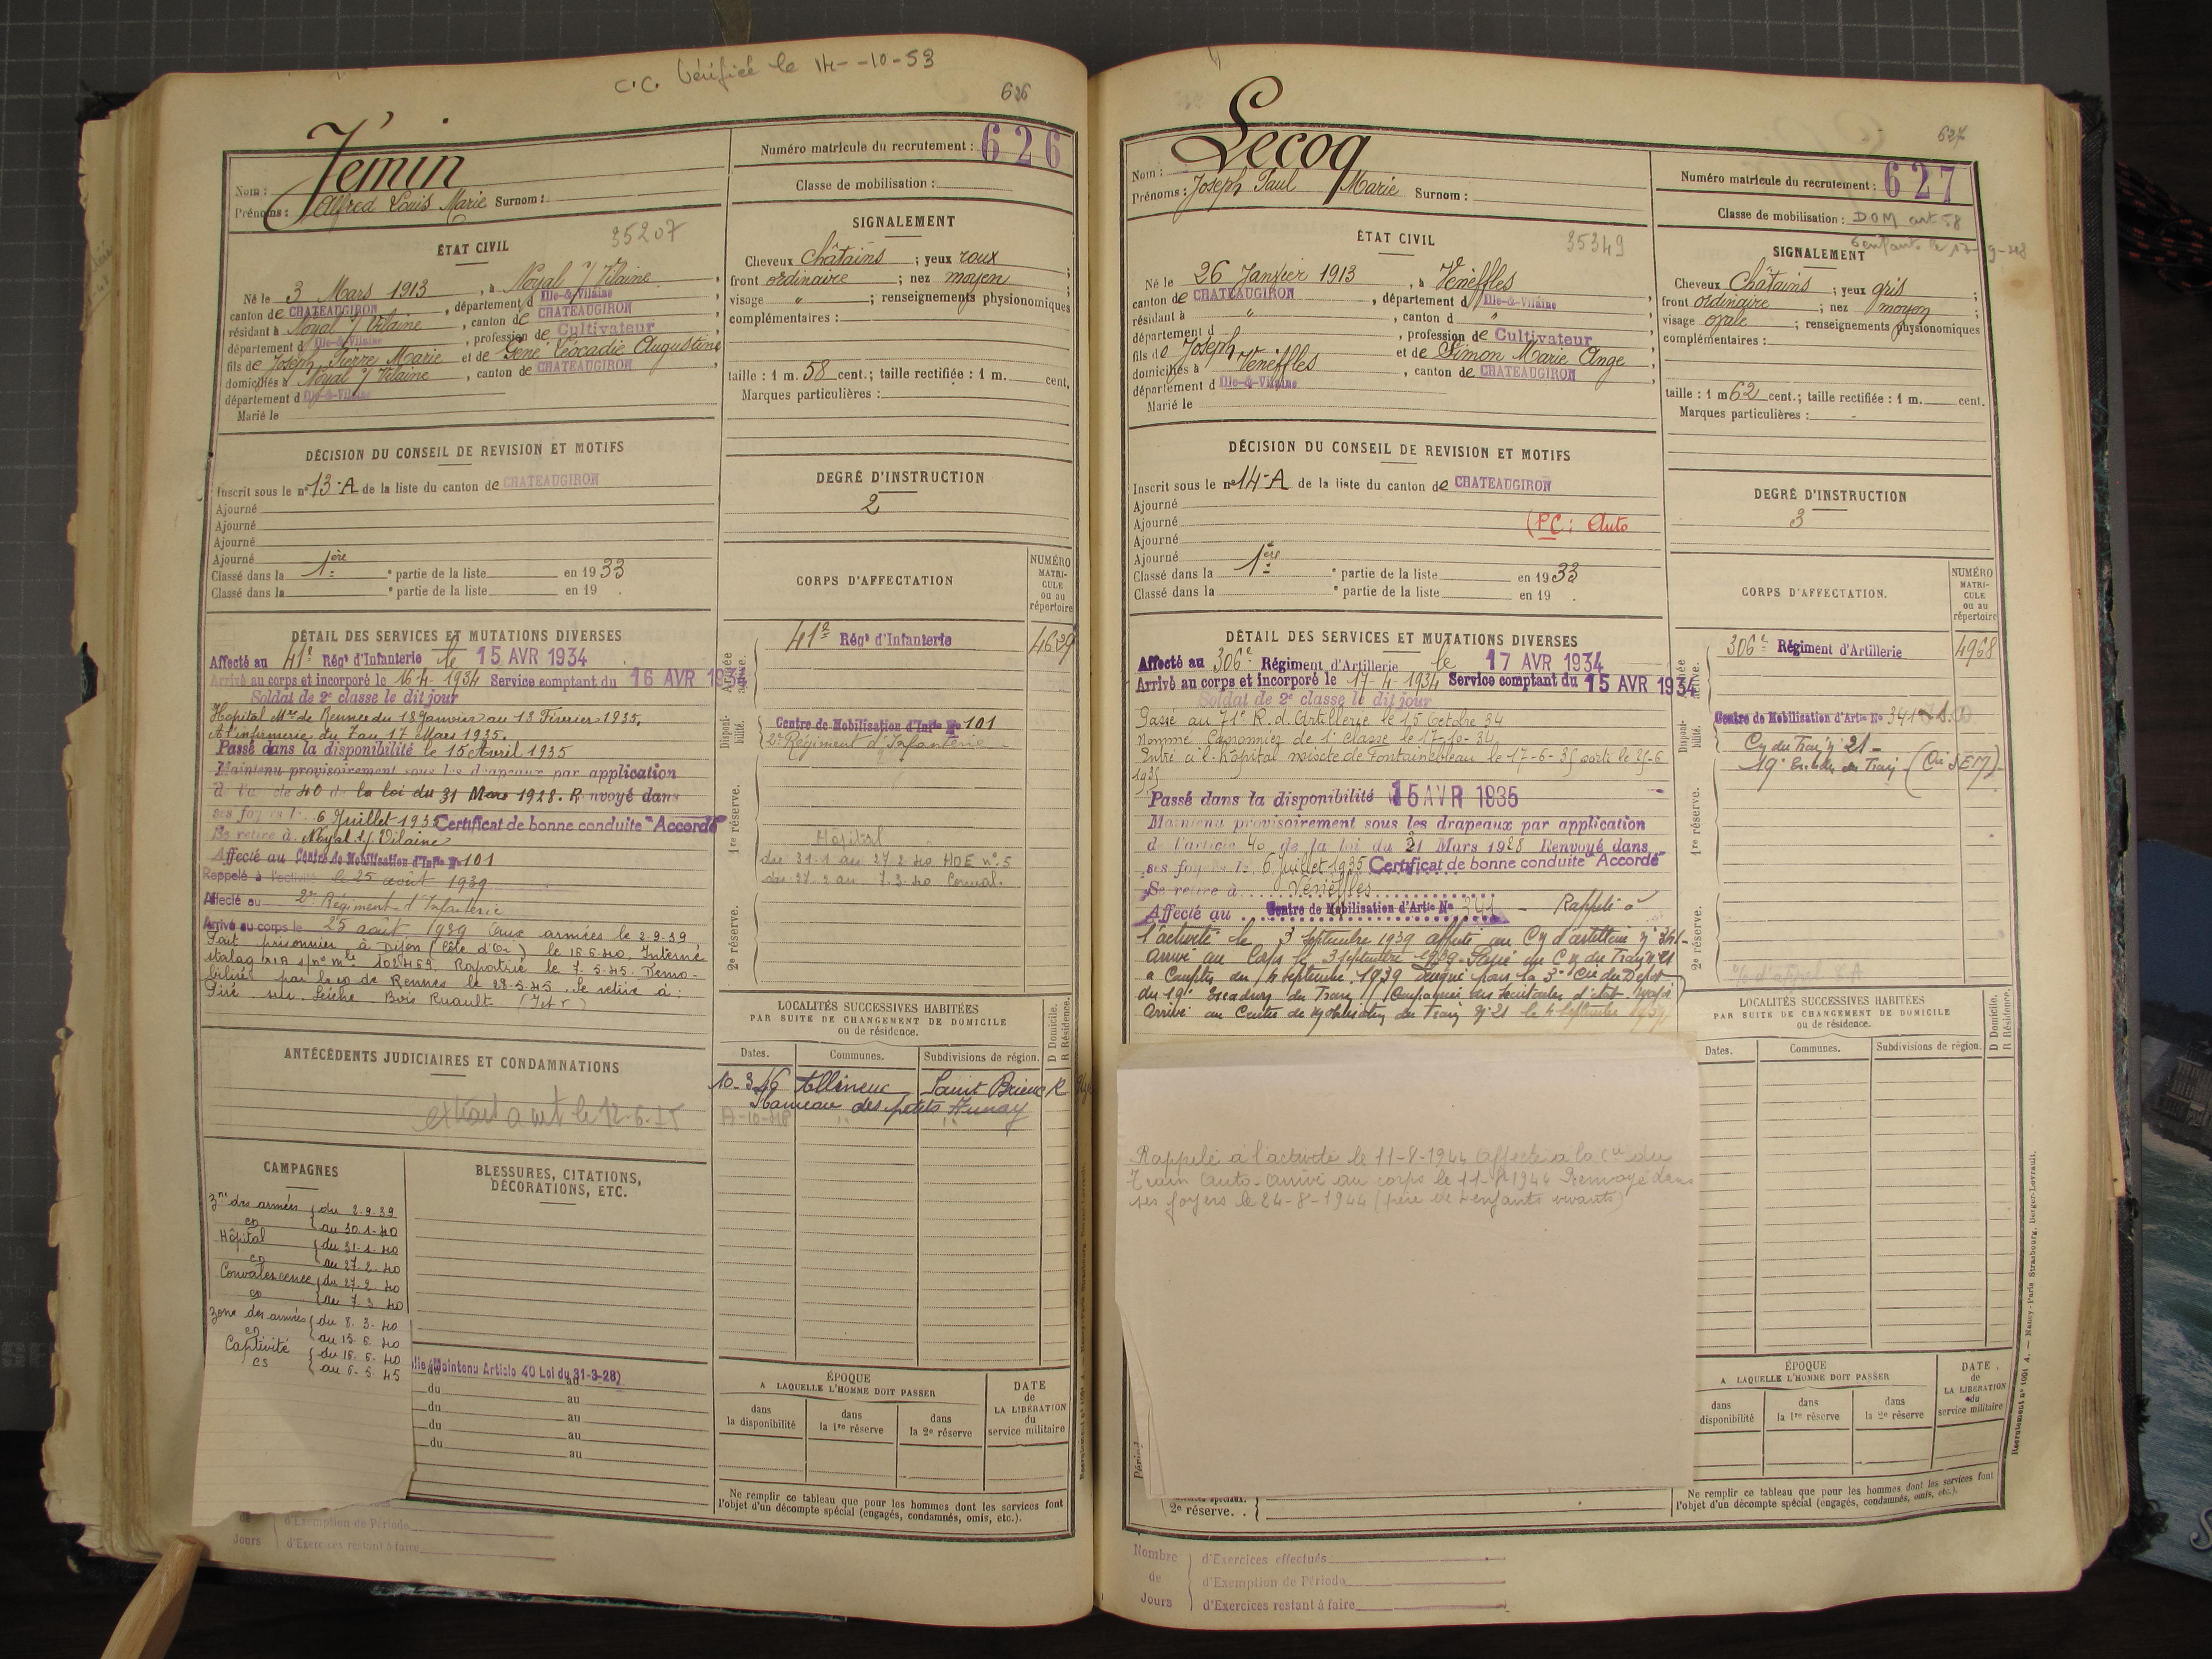 C.C. Vérifiée le 14-10-53
626
Nom : Jemin
Prénoms : Alfred Louis Marie Surnom :
Numéro matricule du recrutement : 626
Classe de mobilisation :
ÉTAT CIVIL
35207
Né le 3 Mars 1913, à Noyal s/ Vilaine,
canton de CHATEAUGIRON, département d Ille-&-Vilaine,
résidant à Noyal s/ Vilaine, canton de CHATEAUGIRON,
département d Ille-&-Vilaine, profession de Cultivateur
fils de Joseph Pierre Marie et de Gené Léocadie Augustine
domiciliés à Noyal s/ Vilaine, canton de CHATEAUGIRON,
département d Ille-&-Vilaine
Marié le
SIGNALEMENT
Cheveux châtains ; yeux roux ;
front ordinaire ; nez moyen ;
visage " ; renseignements physionomiques
complémentaires :
taille : 1 m. 58 cent.; taille rectifiée : 1 m. cent.
Marques particulières :
DÉCISION DU CONSEIL DE REVISION ET MOTIFS
Inscrit sous le nº 13-A de la liste du canton de CHATEAUGIRON
Ajourné
Ajourné
Ajourné
Ajourné
Classé dans la 1ère partie de la liste en 1933
Classé dans la partie de la liste en 19 .
DEGRÉ D'INSTRUCTION
2
CORPS D'AFFECTATION
NUMÉRO MATRICULE ou au répertoire
DÉTAIL DES SERVICES ET MUTATIONS DIVERSES
Affecté au 41e Régt d'Infanterie le 15 AVR 1934
Arrivé au corps et incorporé le 16-4-1934 Service comptant du 16 AVR 1934
Soldat de 2e classe le dit jour
Hopital Mre de Rennes du 18 Janvier au 13 Février 1935.
A l'infirmerie du 7 au 17 Mars 1935.
Passé dans la disponibilité le 15 Avril 1935
Maintenu provisoirement sous les drapeaux par application
de l'article 40 de la loi du 31 Mars 1928. Renvoyé dans
ses foyers le 6 Juillet 1935 Certificat de bonne conduite "Accordé"
Se retire à Noyal s/ Vilaine
Affecté au Centre de Mobilisation d'Infie Nº 101
Rappelé à l'activité le 25 août 1939
Affecté au 2e Régiment d'Infanterie
Arrivé au corps le 25 août 1939 Aux armées le 2-9-39
Fait prisonnier à Dijon (Côte d'Or) le 15 6 40. Interné
stalag XIA s/nº mle 102469. Rapatrié le 7-5-45. Démo-
bilisé par le cp de Rennes le 28-5-45. Se retire à :
Piré sur Seiche Bois Ruault (I et V)
41e Régt d'Infanterie 4629
Centre de Mobilisation d'Infie Nº 101
2e Régiment d'Infanterie
Hôpital
du 31-1 au 27 2 40 HOE nº 5
du 27-2 au 7-3-40 Conval.
Armée active.
Disponibilité.
1re réserve.
2e réserve.
LOCALITÉS SUCCESSIVES HABITÉES
PAR SUITE DE CHANGEMENT DE DOMICILE
ou de résidence.
D Domicile. R Résidence.
Dates. Communes. Subdivisions de région.
10-3-46 Allineuc Saint Brieuc R
Hameau des petits Aunay
ANTÉCÉDENTS JUDICIAIRES ET CONDAMNATIONS
CAMPAGNES
Zne des armées du 2-9-39
CD au 30-1-40
Hôpital du 31-1-40
CD au 27-2-40
Convalescence du 27-2-40
CD au 7-3-40
Zone des armées du 8-3-40
CD au 15-6-40
Captivité du 16-6-40
CS au 6-5-45
BLESSURES, CITATIONS,
DÉCORATIONS, ETC.
(Maintenu Article 40 Loi du 31-3-28)
du au
du au
du au
du au
du au
ÉPOQUE
A LAQUELLE L'HOMME DOIT PASSER
dans la disponibilité
dans la 1re réserve
dans la 2e réserve
DATE de LA LIBÉRATION du service militaire
Ne remplir ce tableau que pour les hommes dont les services font
l'objet d'un décompte spécial (engagés, condamnés, omis, etc.).
de
Jours
d'Exemption de Période
d'Exercices restant à faire
627
Nom : Lecoq
Prénoms : Joseph Paul Marie Surnom :
Numéro matricule du recrutement : 627
Classe de mobilisation : DOM art 58
ÉTAT CIVIL
35349
Né le 26 Janvier 1913, à Venèffles
canton de CHATEAUGIRON, département d Ille-&-Vilaine,
résidant à ", canton d ",
département d , profession de Cultivateur,
fils de Joseph et de Simon Marie Ange
domiciliés à Venèffles, canton de CHATEAUGIRON,
département d Ille-&-Vilaine
Marié le
SIGNALEMENT
Cheveux Châtains ; yeux gris ;
front ordinaire ; nez moyen ;
visage ovale ; renseignements physionomiques
complémentaires :
taille : 1 m 62 cent.; taille rectifiée : 1 m. cent.
Marques particulières :
DÉCISION DU CONSEIL DE REVISION ET MOTIFS
Inscrit sous le nº 14-A de la liste du canton de CHATEAUGIRON
Ajourné
Ajourné (PC: Auto
Ajourné
Ajourné
Classé dans la 1ère partie de la liste en 1933
Classé dans la partie de la liste en 19 .
DEGRÉ D'INSTRUCTION
3
CORPS D'AFFECTATION.
NUMÉRO MATRICULE ou au répertoire
DÉTAIL DES SERVICES ET MUTATIONS DIVERSES
Affecté au 306e Régiment d'Artillerie le 17 AVR 1934
Arrivé au corps et incorporé le 17-4-1934 Service comptant du 15 AVR 1934
Soldat de 2e classe le dit jour
Passé au 71e R. d'Artillerie le 15 Octobre 34
Nommé Canonnier de 1e classe le 17-10-34
Entré à l'hôpital mixte de Fontainebleau le 17-6-35 sorti le 25-6
1935
Passé dans la disponibilité 15 AVR 1935
Maintenu provisoirement sous les drapeaux par application
de l'article 40 de la loi du 31 Mars 1928 Renvoyé dans
ses foyers le 6 juillet 1935 Certificat de bonne conduite "Accordé"
Se retire à Venèffles
Affecté au Centre de Mobilisation d'Artie Nº 341 - Rappelé à
l'activité le 3 Septembre 1939 affecté au CM d'artillerie nº 341-
Arrivé au Corps le 3 septembre 1939. Passé au CM du Train nº 21
à Compter du 4 septembre 1939 désigné pour la 3e Cie du Dépôt
du 19e Escadron du Train
Arrivé au Centre de Mobilisation du Train nº 21 le 4 septembre 1939
306e Régiment d'Artillerie 4968
Centre de Mobilisation d'Artie Nº 341
CM du Train nº 21 -
19e Escadron du Train
Armée active.
Disponibilité.
1re réserve.
2e réserve.
Rappelé à l'activité le 11-8-1944 Affecté à la Cie du
Train Auto-Arrivé au corps le 11-8-1944 Renvoyé dans
ses foyers le 24-8-1944 (père de 4 enfants vivants)
LOCALITÉS SUCCESSIVES HABITÉES
PAR SUITE DE CHANGEMENT DE DOMICILE
ou de résidence.
D Domicile. R Résidence.
Dates. Communes. Subdivisions de région.
ÉPOQUE
A LAQUELLE L'HOMME DOIT PASSER
dans disponibilité
dans la 1re réserve
dans la 2e réserve
DATE de LA LIBÉRATION du service militaire
Ne remplir ce tableau que pour les hommes dont les services font
l'objet d'un décompte spécial (engagés, condamnés, omis, etc.).
2e réserve. .
Nombre
de
Jours
d'Exercices effectués
d'Exemption de Période
d'Exercices restant à faire